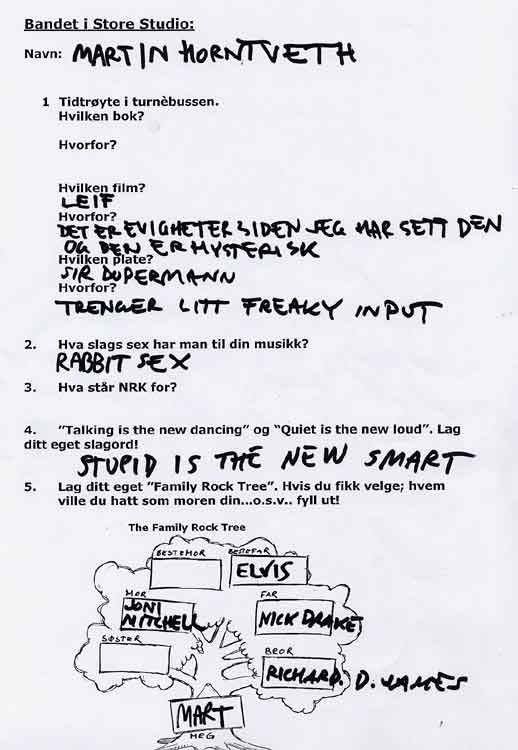 Bandet i Store Studio:
Navn: MARTIN HORNTVETH
1 Tidtrøyte i turnèbussen.
Hvilken bok?
Hvorfor?
Hvilken film?
LEIF
Hvorfor?
DET ER EVIGHETER SIDEN JEG HAR SETT DEN
OG DEN ER HYSTERISK
Hvilken plate?
SIR DUPERMANN
Hvorfor?
TRENGER LITT FREAKY INPUT
2. Hva slags sex har man til din musikk?
RABBIT SEX
3. Hva står NRK for?
4. "Talking is the new dancing" og "Quiet is the new loud". Lag
ditt eget slagord!
STUPID IS THE NEW SMART
5. Lag ditt eget "Family Rock Tree". Hvis du fikk velge; hvem
ville du hatt som moren din...o.s.v.. fyll ut!
The Family Rock Tree
BESTEMOR BESTEFAR
ELVIS
MOR FAR
JONI
MITCHELL NICK DRAKE
SØSTER BROR
RICHARD. D. JAMES
MART
MEG